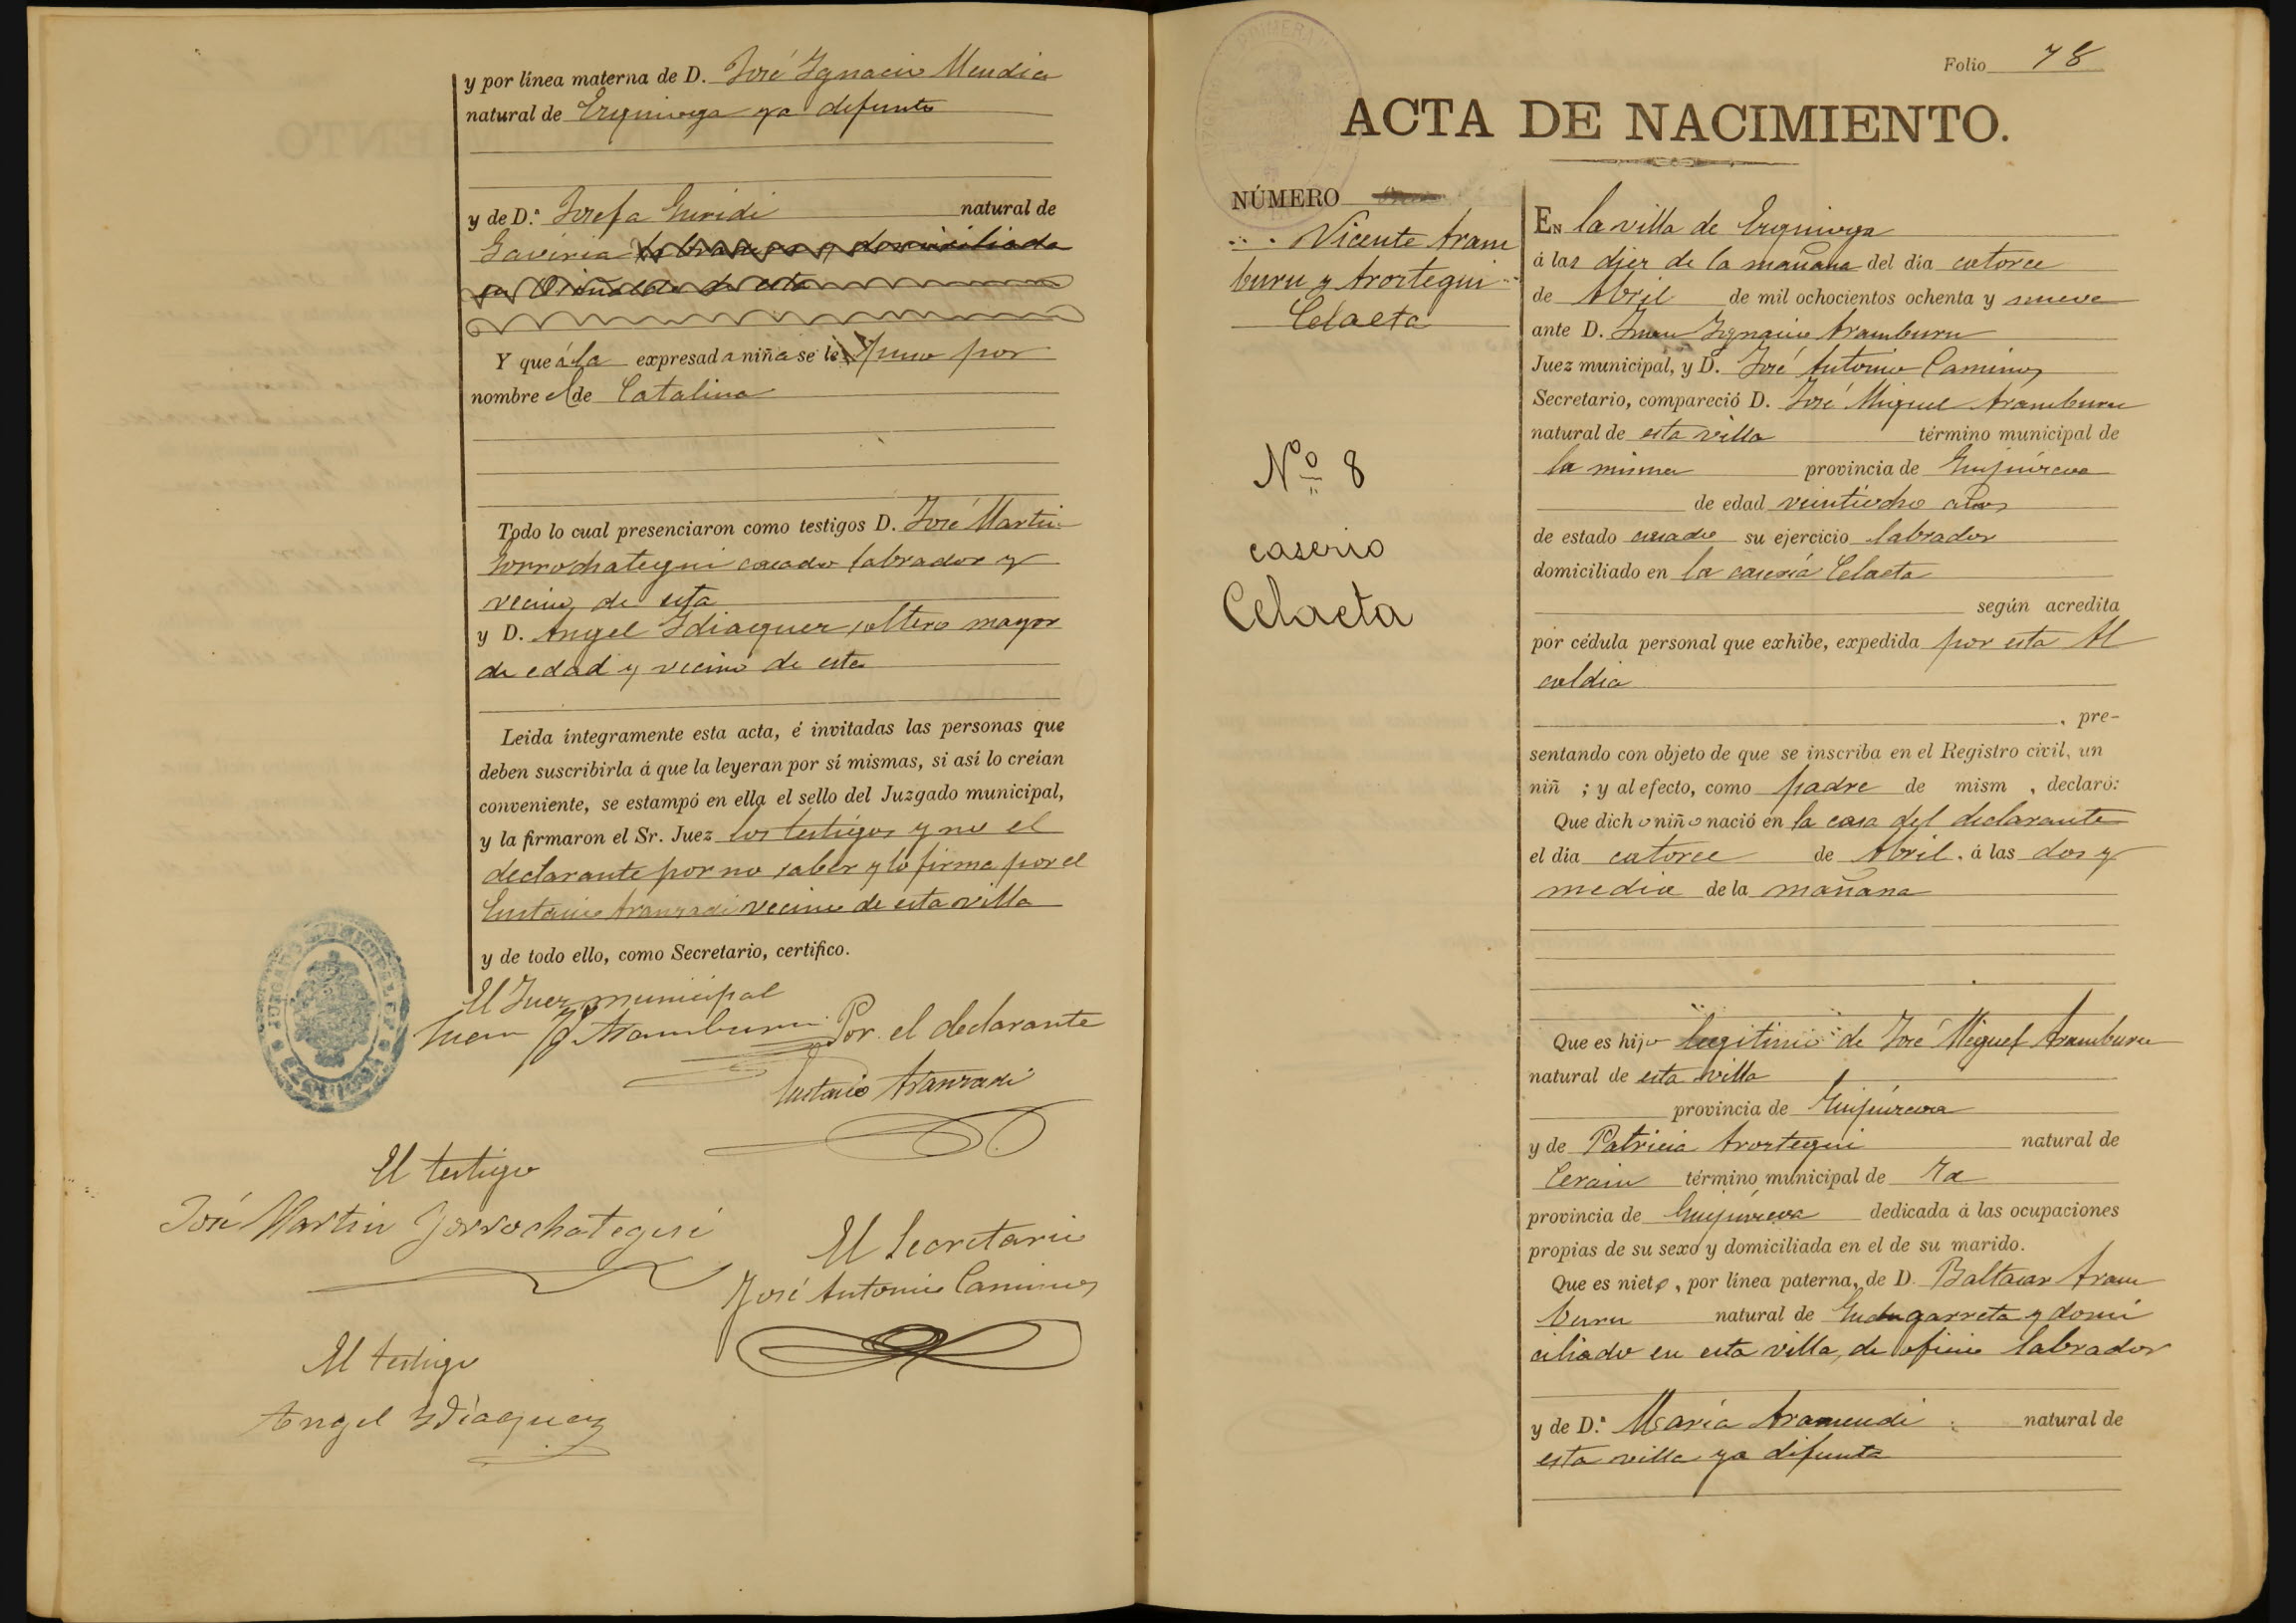 y por línea materna de D. José Ygnacio Mendia
natural de Ezquioga ya defunto
y de D.ª Josefa Guridi natural de
Gaviria labradora y domiciliada
en
Y que á la expresada niña se le puso por
nombre el de Catalina
Todo lo cual presenciaron como testigos D. José Martin
Gorrochategui casado labrador y
vecino de esta
y D. Angel Ydiaquez soltero mayor
de edad y vecino de esta
Leida íntegramente esta acta, é invitadas las personas que
deben suscribirla á que la leyeran por sí mismas, si así lo creían
conveniente, se estampó en ella el sello del Juzgado municipal,
y la firmaron el Sr. Juez los testigos y no el
declarante por no saber y lo firma por el
Eustacio Aranzadi vecino de esta villa
y de todo ello, como Secretario, certifico.
El Juez municipal
Juan Yg Aramburu
Por el declarante
Eustacio Aranzadi
JUZGADO MUNICIPAL
El testigo
José Martin Gorrochategui
El Secretario
José Antonio Caminos
El testigo
Angel Ydiaquez
Folio 78
ACTA DE NACIMIENTO.
NÚMERO
Vicente Aram
buru y Aroztegui
Celaeta
Nº 8
caserio
Celaeta
En la villa de Ezquioga
á las diez de la mañana del día catorce
de Abril de mil ochocientos ochenta y nueve
ante D. Juan Ygnacio Aramburu
Juez municipal, y D. José Antonio Caminos
Secretario, compareció D. José Miguel Aramburu
natural de esta villa término municipal de
la misma provincia de Guipúzcoa
de edad veintiocho años
de estado casado su ejercicio labrador
domiciliado en la caseria Celaeta
según acredita
por cédula personal que exhibe, expedida por esta Al
caldia
, pre-
sentando con objeto de que se inscriba en el Registro civil, un
niñ ; y al efecto, como padre de mism , declaró:
Que dicho niño nació en la casa del declarante
el dia catorce de Abril, á las dos y
media de la mañana
Que es hijo legitimo de José Miguel Aramburu
natural de esta villa
provincia de Guipúzcoa
y de Patricia Aroztegui natural de
Cerain término municipal de Id
provincia de Guipúzcoa dedicada á las ocupaciones
propias de su sexo y domiciliada en el de su marido.
Que es nieto, por línea paterna, de D. Baltasar Aram
buru natural de Gudugarreta y domi
ciliado en esta villa, de oficio labrador
y de D.ª Maria Aramendi natural de
esta villa ya difunta